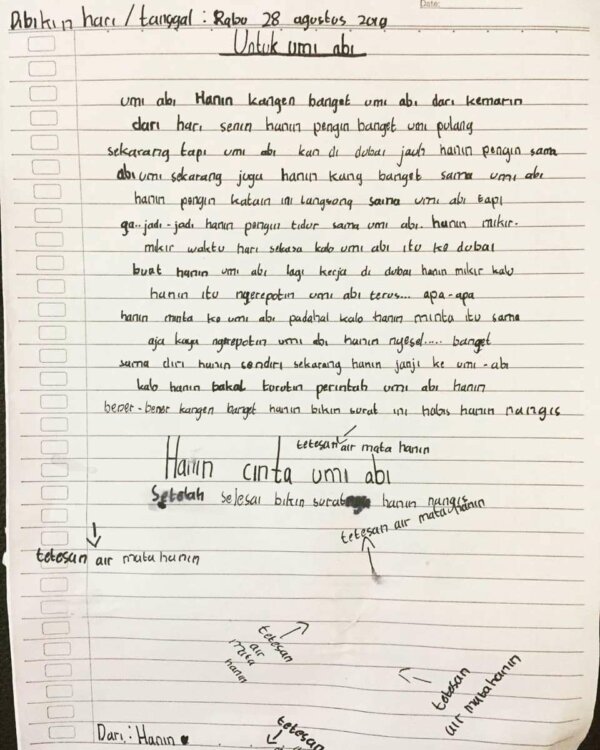 Date:
Dibikin hari / tanggal : Rabo 28 agustus 2019
Untuk umi abi
umi abi Hanin kangen banget umi abi dari kemarin
dari hari senin hanin pengin banget umi pulang
sekarang tapi umi abi kan di dubai jauh hanin pengin sama
abi umi sekarang juga hanin kang banget sama umi abi
hanin pengin katain ini langsong sama umi abi tapi
ga..jadi-jadi hanin pengin tidur sama umi abi. hanin mikir.
mikir waktu hari sekasa kalo umi abi itu ke dubai
buat hanin umi abi lagi kerja di dubai hanin mikir kalu
hanin itu ngerepotin umi abi terus... apa-apa
hanin minta ke umi abi padahal kalo hanin minta itu sama
aja kaya ngerepotin umi abi hanin nyesel..... banget
sama diri hanin sendiri sekarang hanin janji ke umi-abi
kalo hanin bakal torotin perintah umi abi hanin
bener-bener kangen banget hanin bikin surat ini habis hanin nangis
tetesan air mata hanin
Hanin cinta umi abi
Setelah selesai bikin surat hanin nangis
tetesan air mata hanin
tetesan air mata hanin
tetesan
air
mata
hanin
tetesan
air mata hanin
Dari : Hanin
tetesan